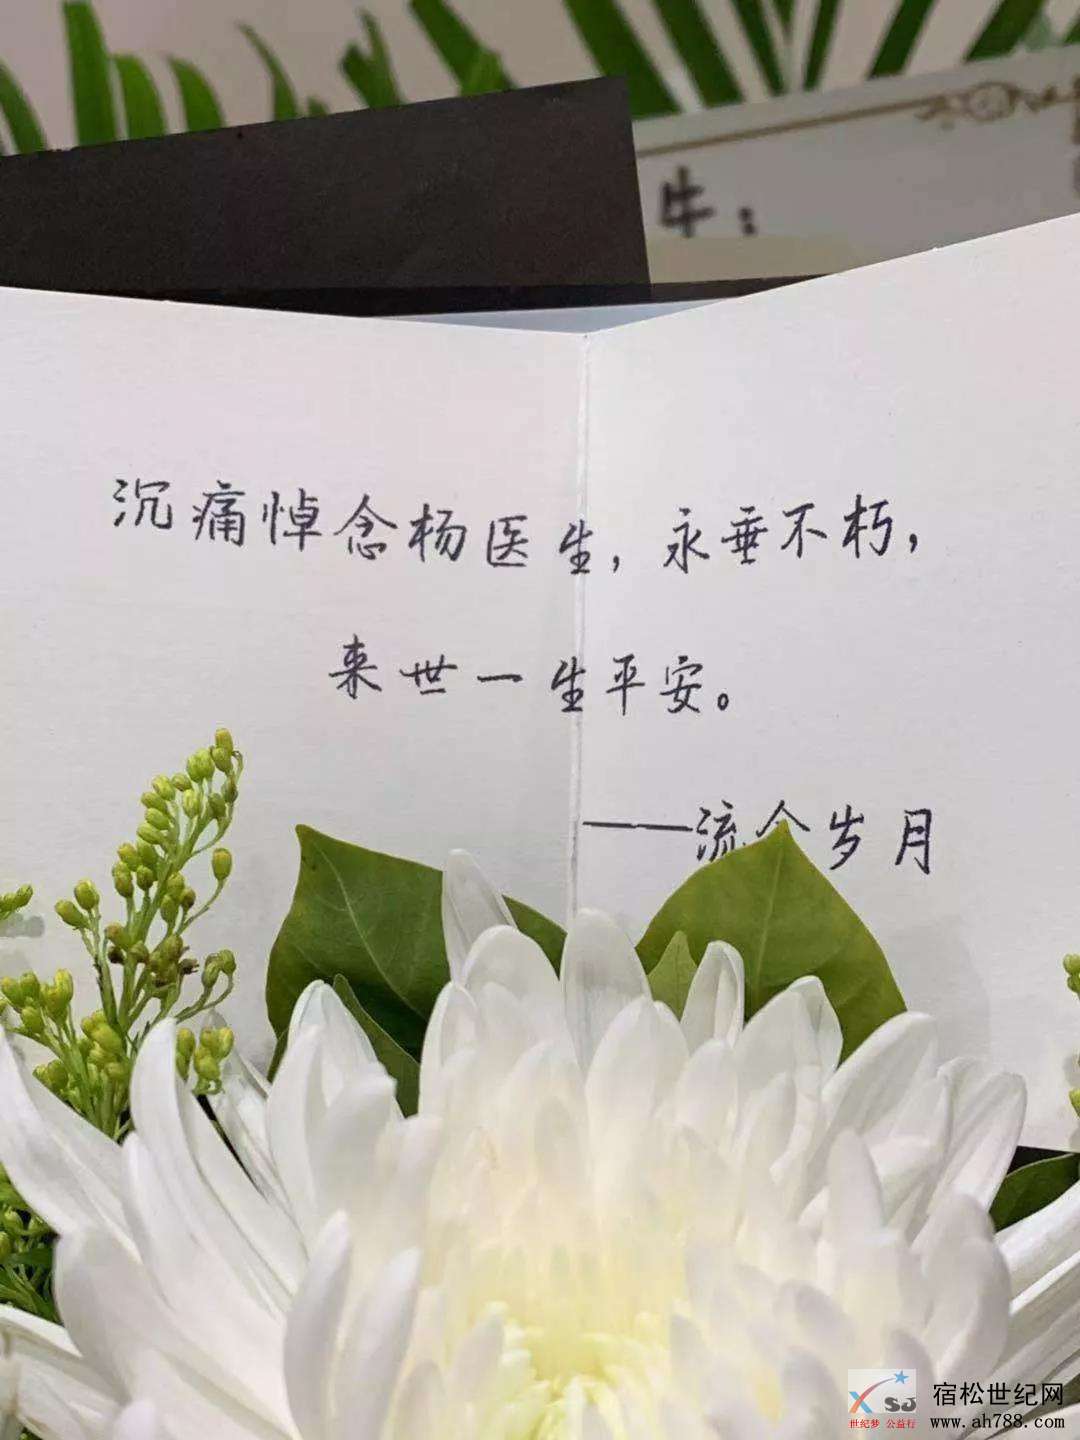 牛：
沉痛悼念杨医生，永垂不朽，
来世一生平安。
——流金岁月
XSJ
世纪梦 公益行
宿松世纪网
www.ah788.com